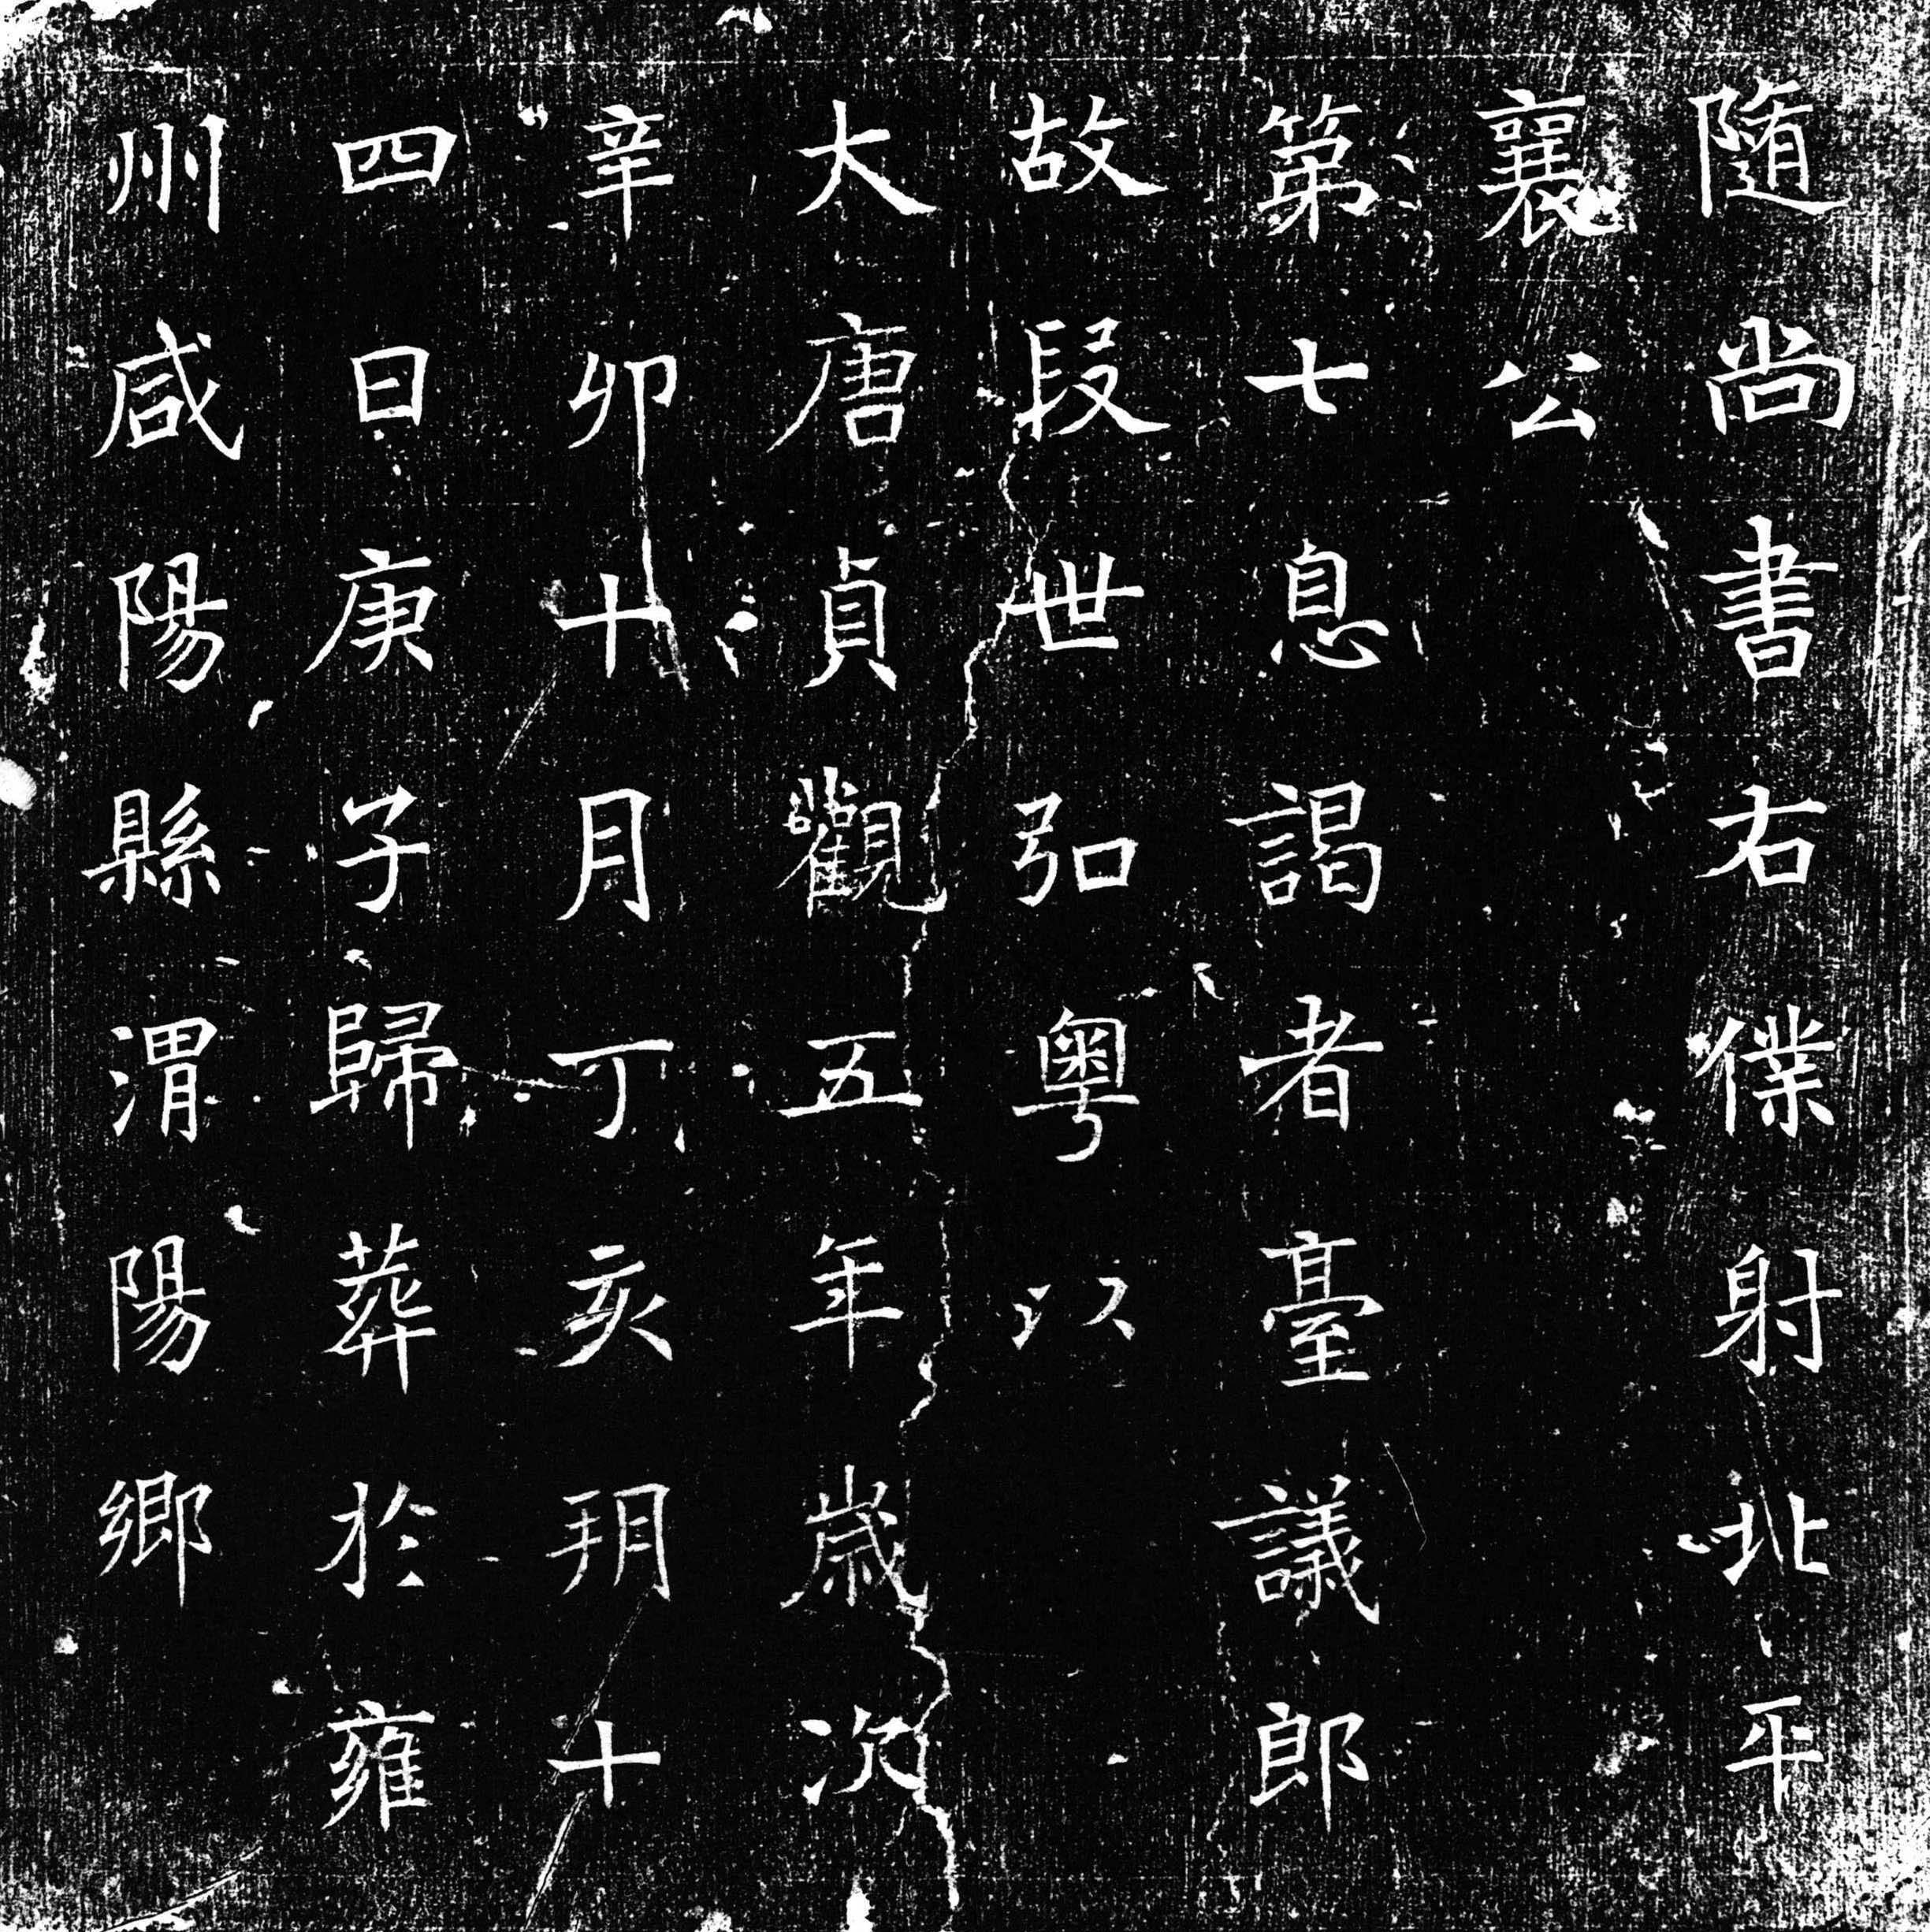 隨尚書右僕射北平
襄公
第七息謁者臺議郎
故段世弘粵以
大唐貞觀五年歲次
辛卯十月丁亥玥十
四日庚子歸葬於雍
州咸陽縣渭陽鄉